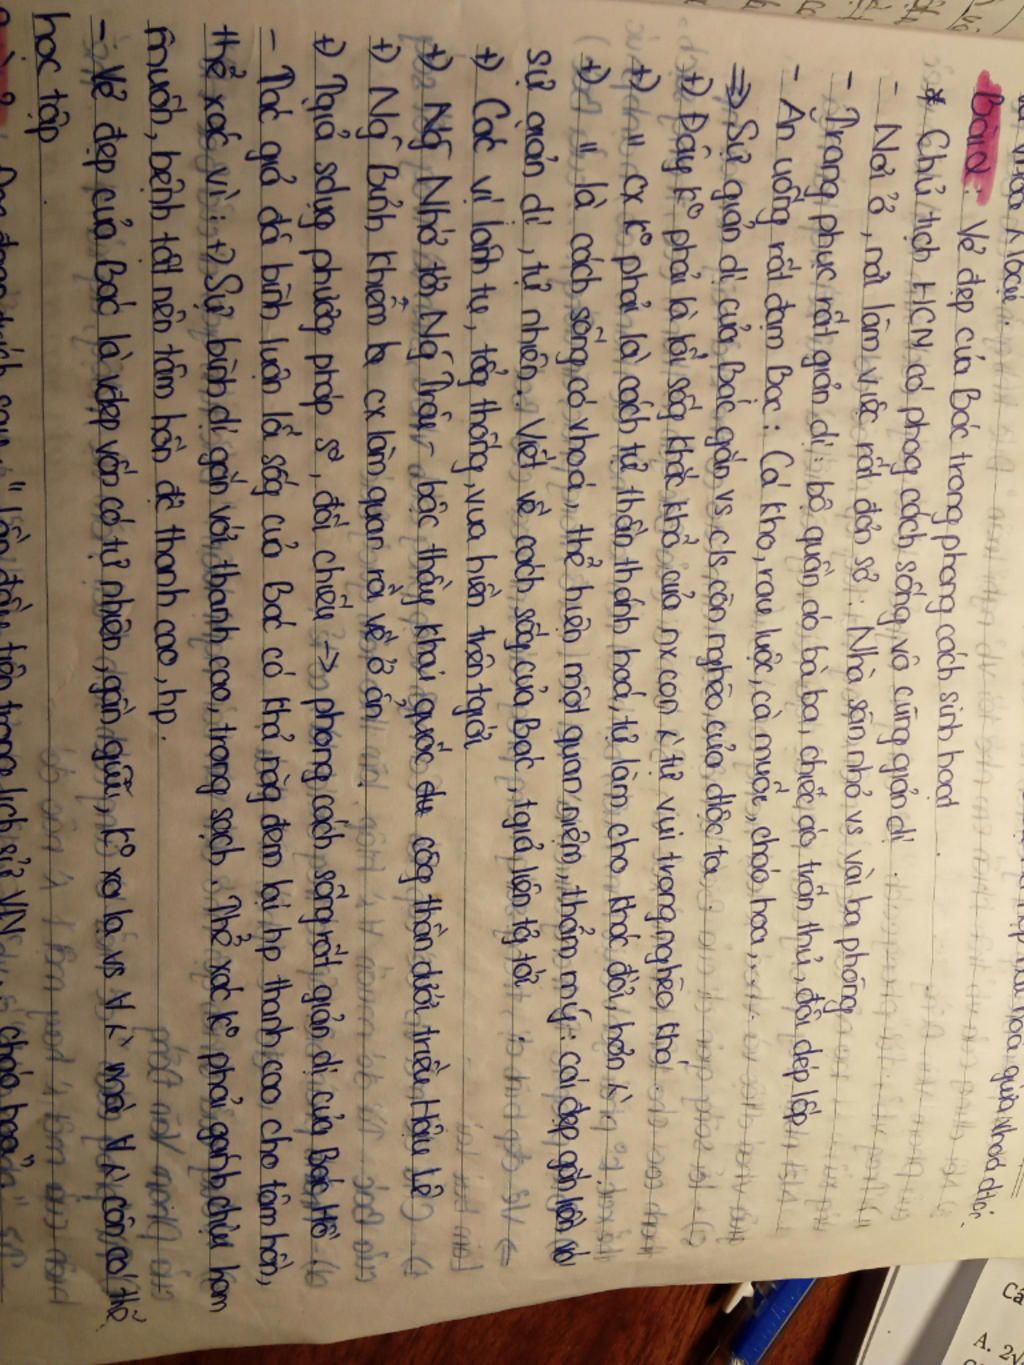 Bài 2: Vẻ đẹp của Bác trong phong cách sinh hoạt
* Chủ tịch HCM có phog cách sống vô cùng giản dị
- Nơi ở, nơi làm việc rất đơn sơ: Nhà sàn nhỏ vs vài ba phòng
- Trang phục rất giản dị: bộ quần áo bà ba, chiếc áo trấn thủ, đôi dép lốp
- Ăn uống rất đạm bạc: Cá kho, rau luộc, cà muối, cháo hoa,...
=> Sự giản dị của Bác gắn vs c/s còn nghèo của dtộc ta
+) Đây k° phải là lối sốg khắc khổ của nx con ng` tự vui trong nghèo khó
+) " cx k° phải là cách tự thần thánh hoá, tự làm cho khác đời, hơn ng`
+) " là cách sống có vhoá, thể hiện một quan niệm thẩm mỹ: cái đẹp gắn liền với
sự giản dị, tự nhiên. Viết về cách sốg của Bác, tgiả liên tg tới
+) Các vị lãnh tụ, tổg thống, vua hiền trên tgiới
+) Ng~ Nhớ tới Ng~ Trãi - bậc thầy khai quốc côg thần dưới triều Hậu Lê
+) Ng~ Bỉnh Khiêm là cx làm quan rồi về ở ẩn
+) Tgiả sdụg phươg pháp s², đối chiếu -> phong cách sống rất giản dị của Bác Hồ
- Tác giả đã bình luận lối sốg của Bác có khả năg đem lại hp thanh cao cho tâm hồn,
thể xác vì: +) Sự bình dị gắn với thanh cao, trong sạch. Thể xác k° phải gánh chịu ham
muốn, bệnh tật nên tâm hồn đc thanh cao, hp.
- Vẻ đẹp của Bác là vđẹp vốn có tự nhiên, gần gũi, k° xa lạ vs mà còn có thể
học tập
đoạn trích sau: " lần đầu tiên trong lịch sử VN cháo hoa"